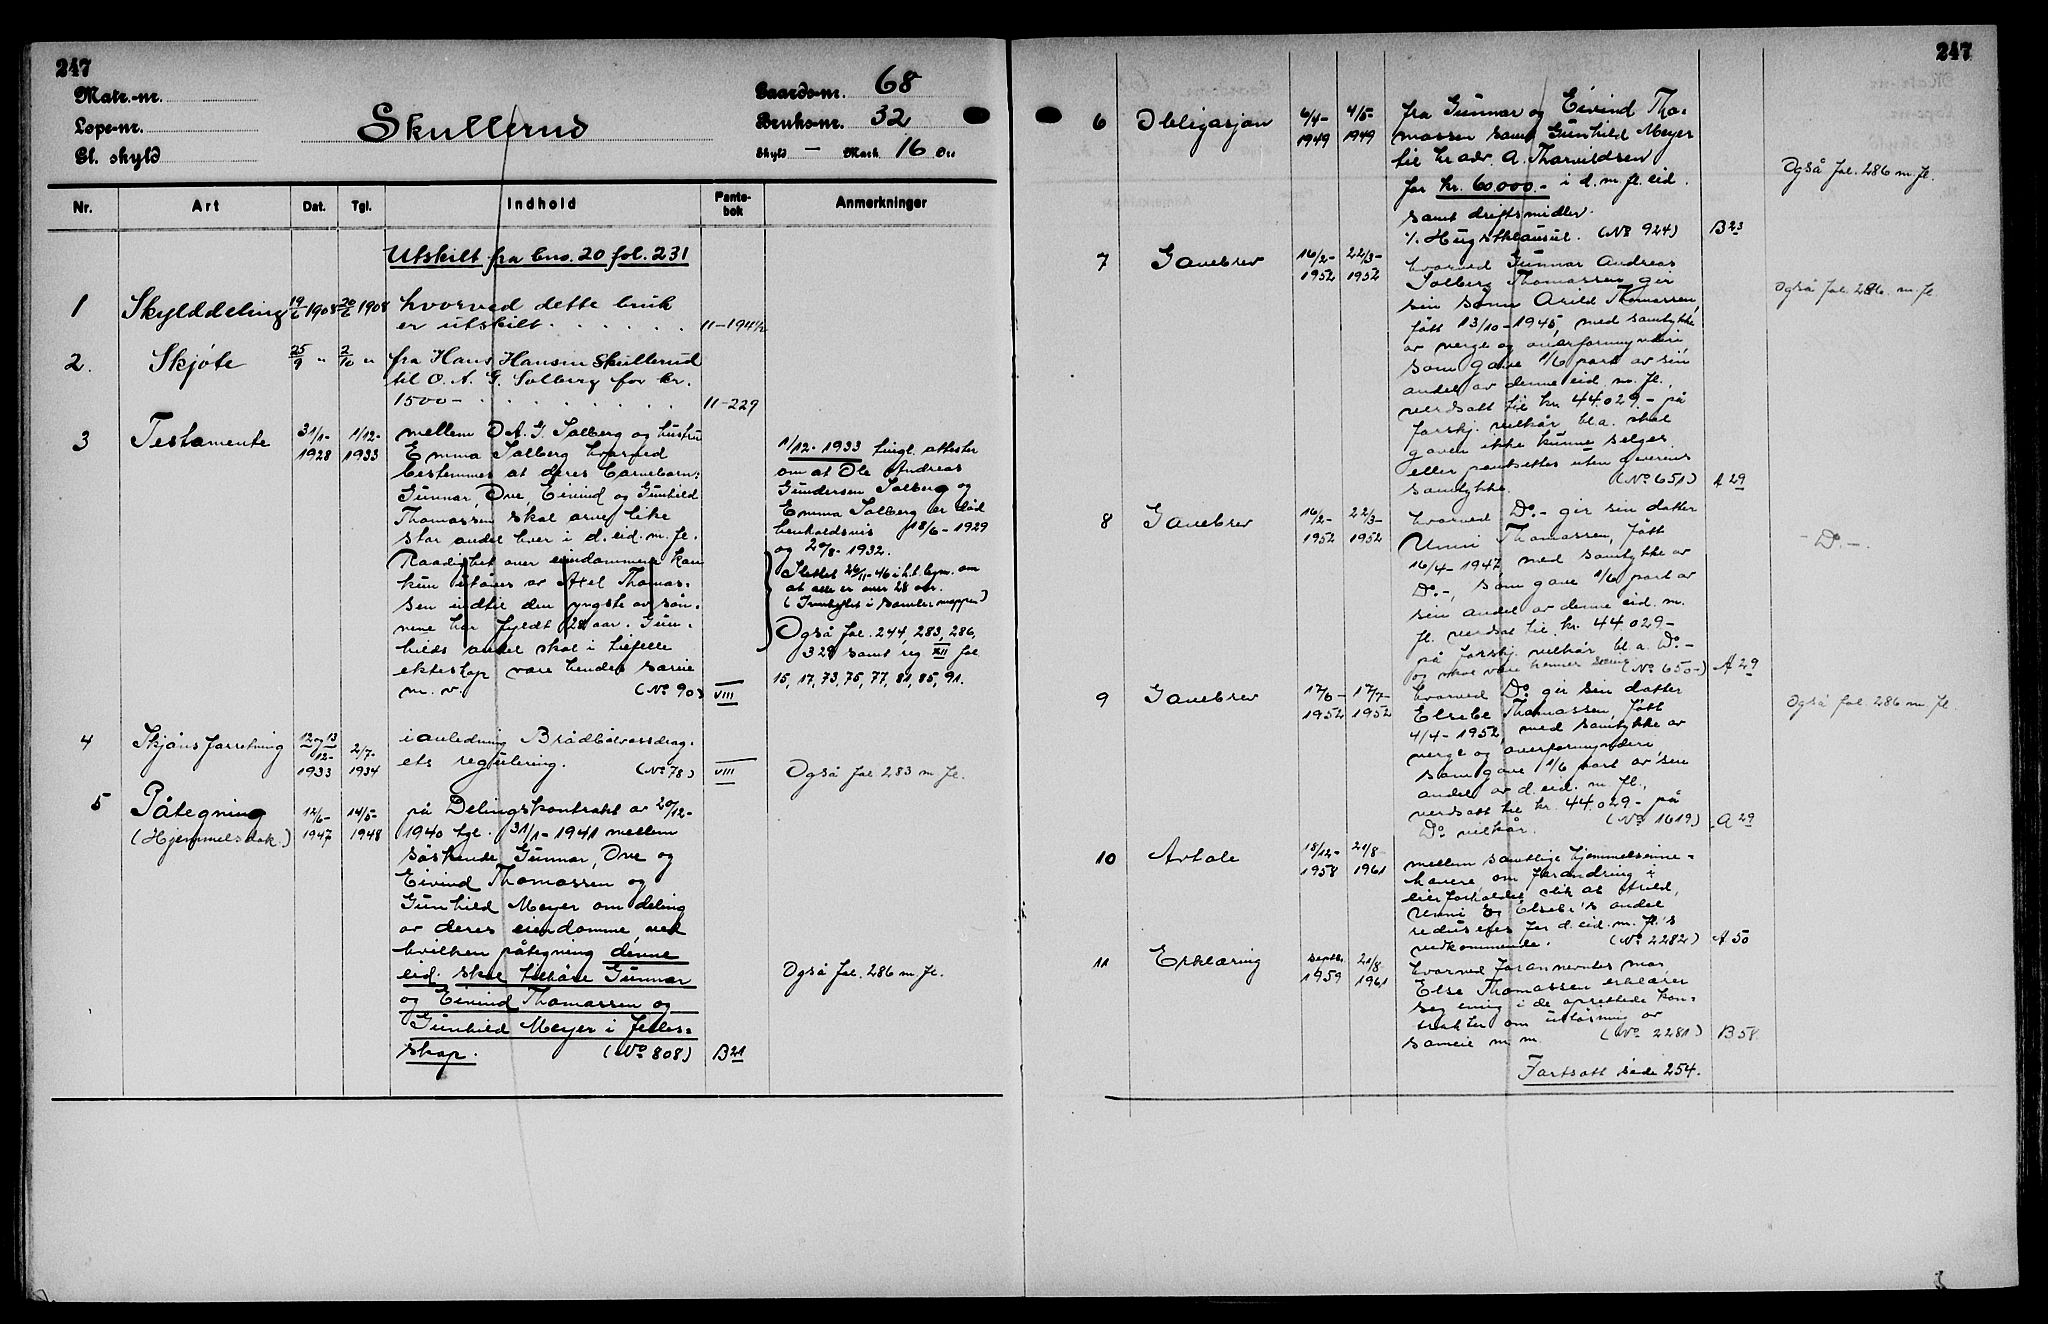 247
Matr.-nr.
Løpe-nr.
Gl. skyld
Skullerud
Gaards-nr. 68
Bruks-nr. 32
Skyld — Mark 16 Øre
Nr. Art Dat. Tgl. Indhold Pante-bok Anmerkninger
Utskilt fra bno. 20 fol. 231
1 Skylddeling 19/6 1908 20/6 1908 hvorved dette bruk
er utskilt . . . . . . 11-194 1/2
2. Skjøte 25/9 " 2/10 " fra Hans Hansen Skullerud
til O. A. G. Solberg for kr.
1500- . . . . . . . 11-229
3 Testamente 31/1-1928 1/12-1933 mellem O. A. G. Solberg og hustru
Emma Solberg hvorved
bestemmes at deres barnebarn:
Gunnar, Ove, Eivind og Gunhild
Thomassen skal arve like
stor andel hver i d. eid. m. fl.
Raadighet over eiendommene kan
kun utøves av Axel Thomas-
sen indtil den yngste av søn-
nene har fyldt 28 aar. Gun-
hilds andel skal i tilfelle
ekteskap være hendes særeie
m. v. (No 90) VIII
1/12-1933 tingl. attester
om at Ole Andreas
Gundersen Solberg og
Emma Solberg er død
henholdsvis 18/6-1929
og 20/8-1932.
Slettet 26/11-46 i h.t. bem. om
at alle er over 28 aar.
(Innheftet i samlermappen)
Også fol. 244, 283, 286,
329 samt reg XII fol
15, 17, 73, 75, 77, 81, 85, 91.
4 Skjønsforretning 12 og 13/12-1933 2/7-1934 i anledning Brådbølvassdrag-
ets regulering. (No 78) VIII Også fol. 283 m. fl.
5 Påtegning 12/6-1947 14/5-1948 på Delingskontrakt av 20/12-
(Hjemmelsdok.) 1940 tgl. 31/1-1941 mellem
søskende Gunnar, Ove og
Eivind Thomassen og
Gunhild Meyer om deling
av deres eiendomme, ved
hvilken påtegning denne
eid. skal tilhøre Gunnar
og Eivind Thomassen og
Gunhild Meyer i felles-
skap. (No 808) B 21
Også fol. 286 m. fl.
247
6 Obligasjon 6/4-1949 4/5-1949 fra Gunnar og Eivind Tho-
massen samt Gunhild Meyer
til hr. adv. A. Thorvildsen
for kr. 60.000.- i d. m. fl. eid.
samt driftsmidler.
% Hugstklausul. (No 924) B 23
Også fol. 286 m. fl.
7 Gavebrev 16/2-1952 22/3-1952 hvorved Gunnar Andreas
Solberg Thomassen gir
sin sønn Arild Thomassen,
født 13/10-1945, med samtykke
av verge og overformynderi
som gave 1/6 part av sin
andel av denne eid. m. fl.,
verdsatt til kr. 44.029.- på
forskj. vilkår bl.a. skal
gaven ikke kunne selges
eller pantsettes uten giverens
samtykke. (No 651) A 29
Også fol. 286. m. fl.
8 Gavebrev 16/2-1952 22/3-1952 hvorved Do.- gir sin datter
Unni Thomassen, født
16/4-1947, med samtykke av
Do.-, som gave 1/6 part av
sin andel av denne eid. m.
fl. verdsat til kr. 44.029-
på forskj. vilkår bl. a. Do.-
og skal være hennes særeie (No 650-) A 29
- Do.-.
9 Gavebrev 17/6-1952 17/7-1952 hvorved Do. gir sin datter
Elsebe Thomassen, født
4/4-1952, med samtykke av
verge og overformynderi
som gave 1/6 part av sin
andel av d. eid. m. fl.,
verdsatt til kr. 44.029- på
Do. vilkår. (No 1619) A 29
Også fol. 286 m. fl.
10 Avtale 18/12-1958 21/8-1961 mellem samtlige hjemmelsinne-
havere om forandring i
eierforholdet slik at Arild,
Unni og Elsebe's andel
reduseres for d. eid. m. fl.'s
vedkommende. (No 2282) A 50
11 Erklæring Septbr. 1959 21/8-1961 hvorved forannevntes mor
Else Thomassen erklærer
seg enig i de oprettede kon-
trakter om utløsning av
sameie m. m. (No 2281) B 58
Fortsatt side 254.